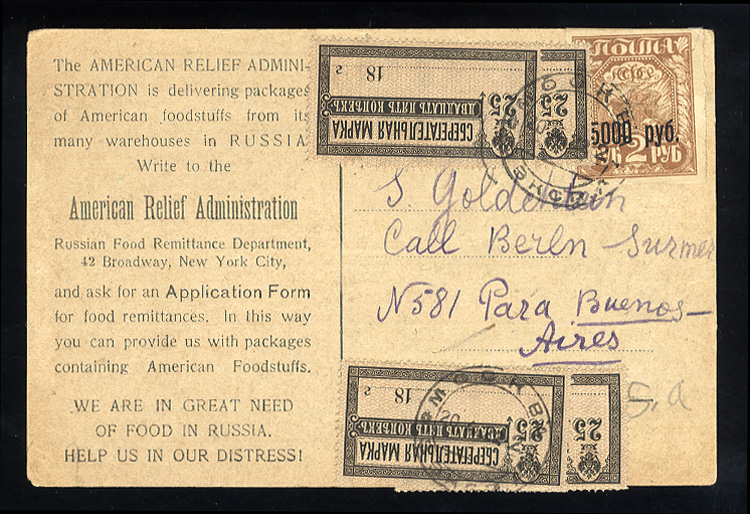 The AMERICAN RELIEF ADMINI-
STRATION is delivering packages
of American foodstuffs from its
many warehouses in RUSSIA
Write to the
American Relief Administration
Russian Food Remittance Department,
42 Broadway, New York City,
and ask for an Application Form
for food remittances. In this way
you can provide us with packages
containing American Foodstuffs.
WE ARE IN GREAT NEED
OF FOOD IN RUSSIA.
HELP US IN OUR DISTRESS!
СБЕРЕГАТЕЛЬНАЯ МАРКА
ДВАДЦАТЬ ПЯТЬ КОПѢЕКЪ
25
18
25
ПОЧТА
РСФСР
5000 руб.
2 РУБ
S. Goldenstein
Call Berln Surmer
N581 Para Buenos-
Aires
S.A
СБЕРЕГАТЕЛЬНАЯ МАРКА
ДВАДЦАТЬ ПЯТЬ КОПѢЕКЪ
25
18
25
МОСКВА